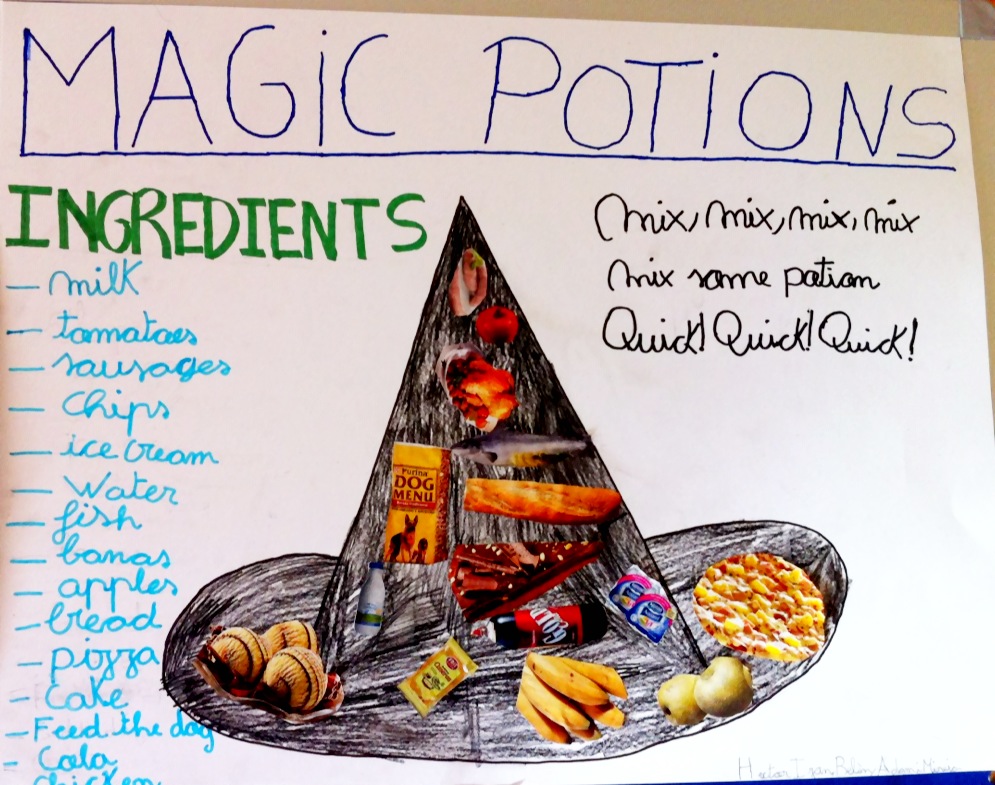 MAGiC POTiONS
INGREDIENTS
— milk
— tomatoes
— sausages
— Chips
— ice cream
— Water
— fish
— banas
— apples
— bread
— pizza
— Cake
— Feed the dog
— Cola
chicken
Mix, Mix, Mix, Mix
Mix some potion
Quick! Quick! Quick!
Purina
DOG
MENU